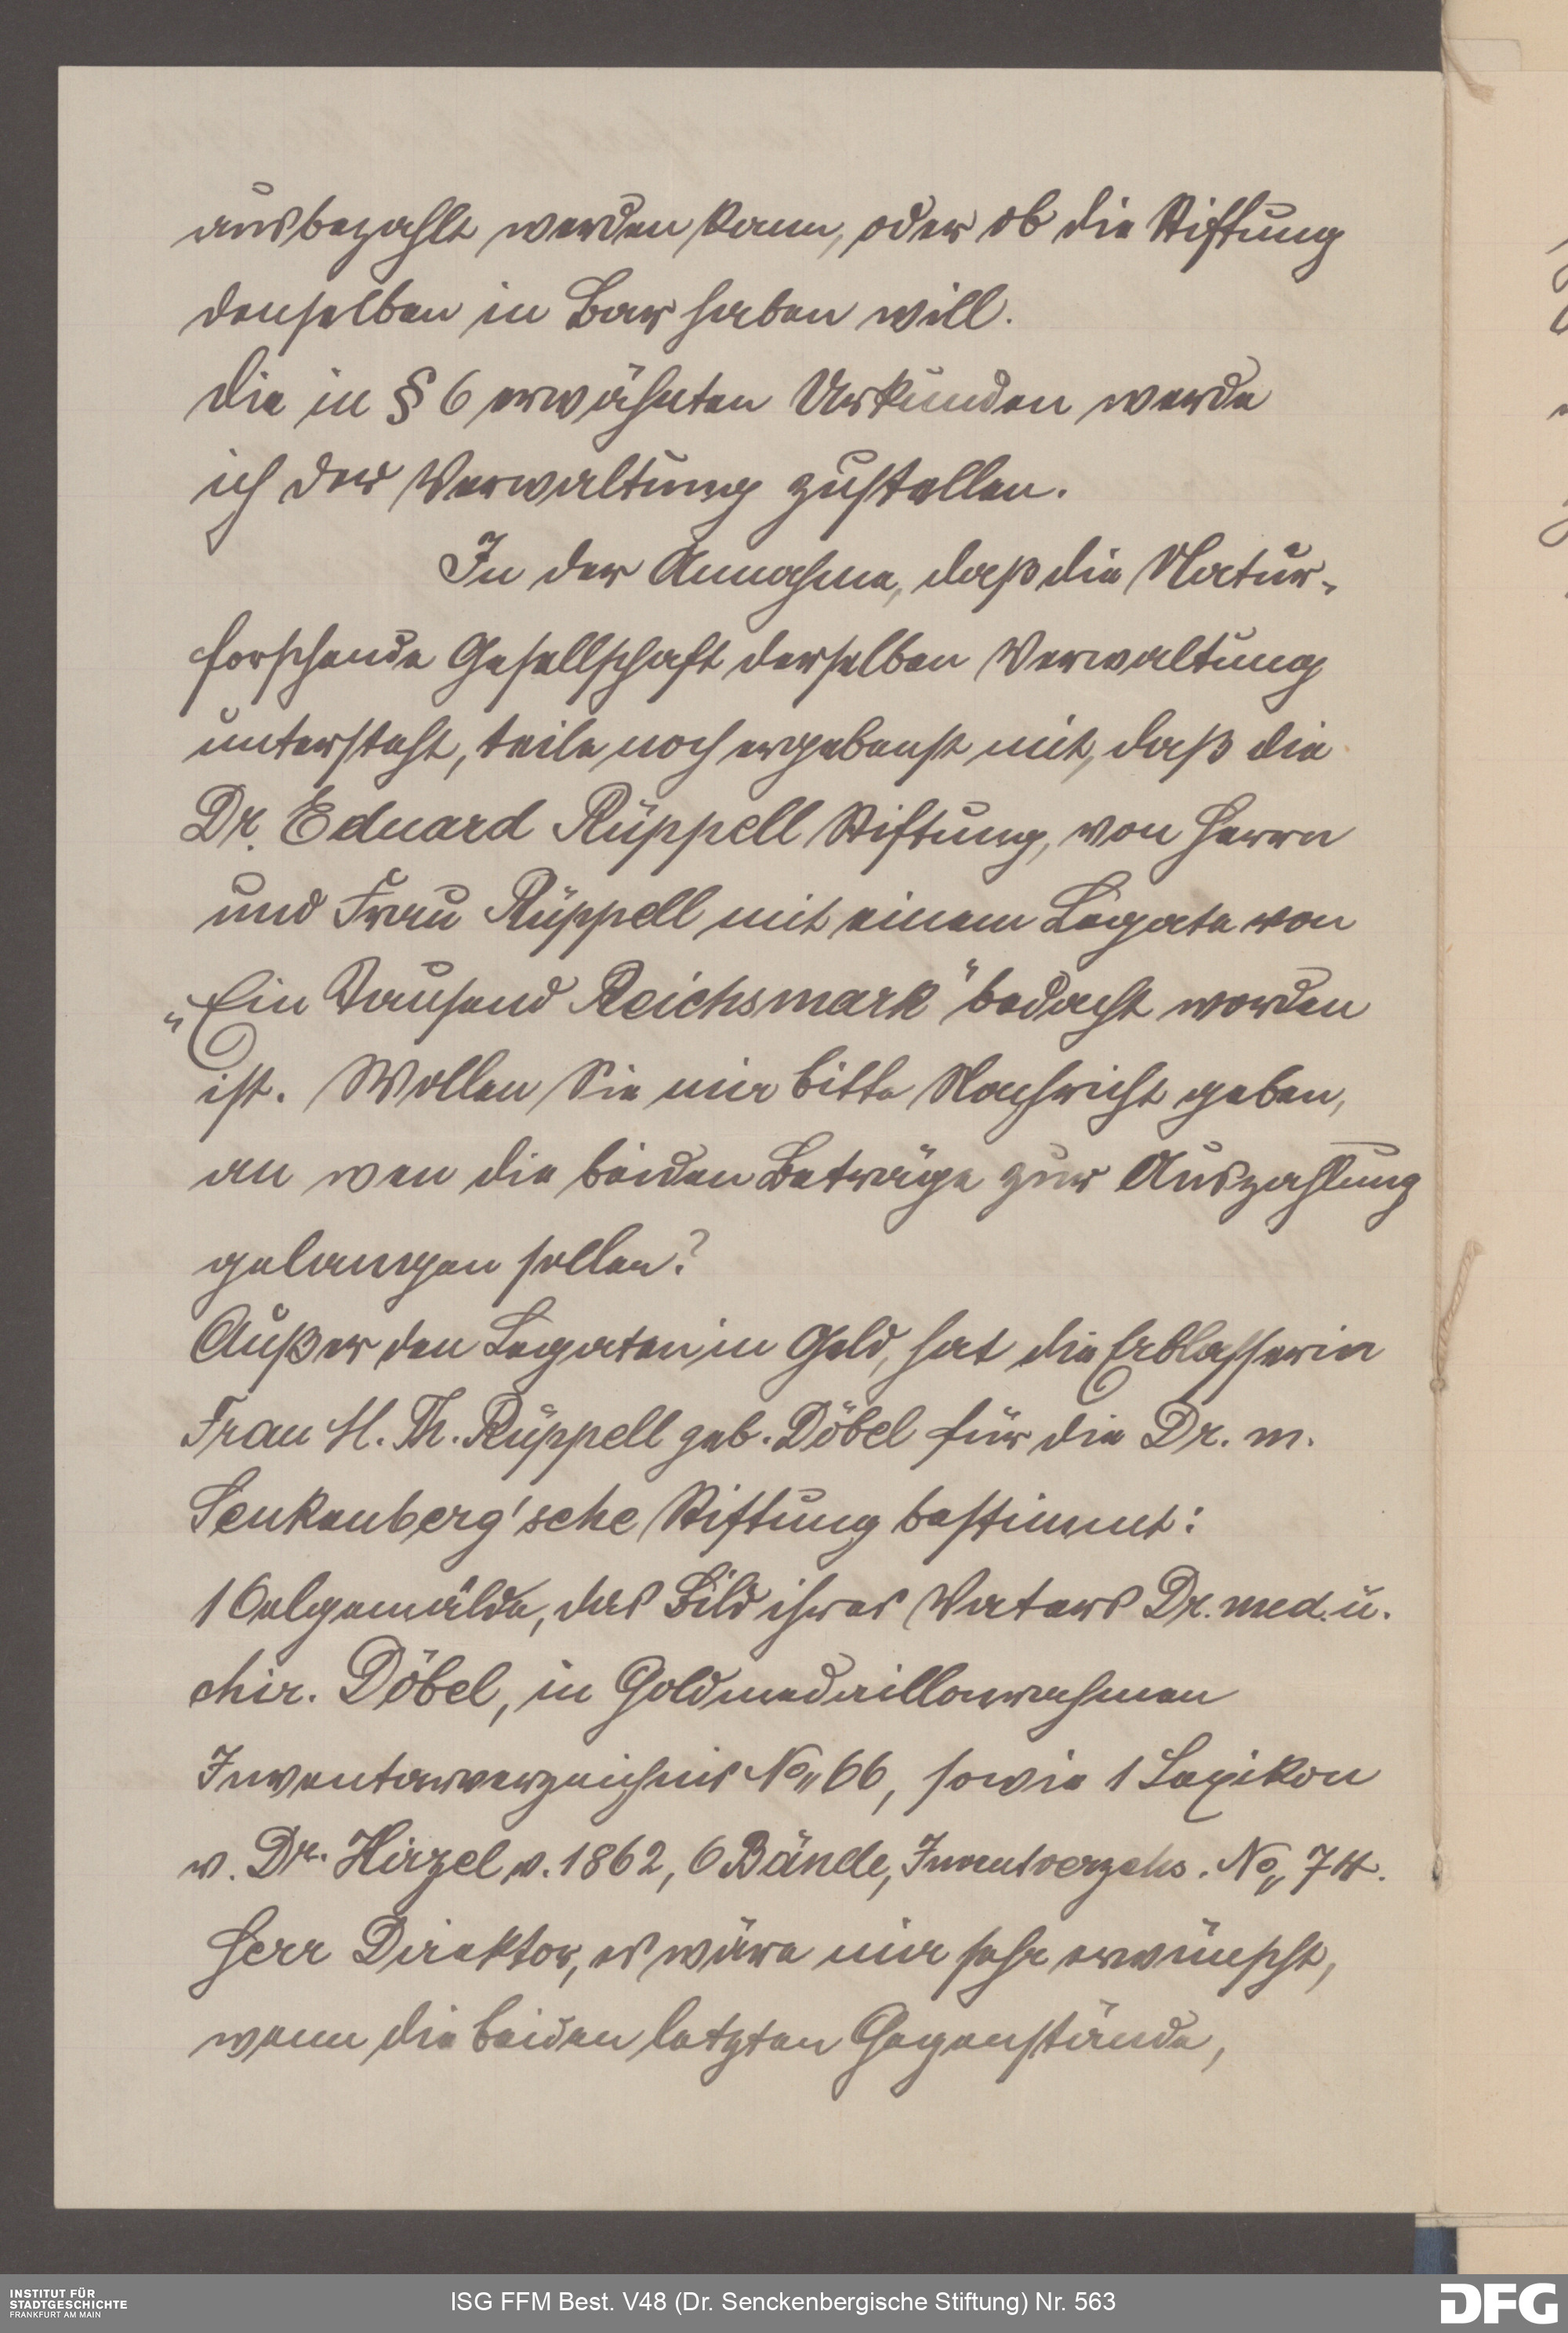 ausbezahlt werden kann, oder ob die Stiftung
denselben in Bar haben will.
Die in § 6 erwähnten Urkunden werde
ich der Verwaltung zustellen.
In der Annahme, daß die Natur-
forschende Gesellschaft derselben Verwaltung
untersteht, teile noch ergebenst mit, daß die
Dr. Eduard Rüppell Stiftung, von Herrn
und Frau Rüppell mit einem Legate von
„Ein Tausend Reichsmark" bedacht worden
ist. Wollen Sie mir bitte Nachricht geben,
an wen die beiden Beträge zur Auszahlung
gelangen sollen?
Außer den Legaten in Geld, hat die Erblasserin
Frau H. Th. Rüppell geb. Döbel für die Dr. m.
Senkenberg'sche Stiftung bestimmt:
1 Oelgemälde, das Bild ihres Vaters Dr. med. u.
chir. Döbel, in Goldmedaillonrahmen
Inventarverzeichnis No 66, sowie 1 Lexikon
v. Dr. Hirzel v. 1862, 6 Bände, Inventverzchs. No 74.
Herr Direktor, es wäre mir sehr erwünscht,
wenn die beiden letzten Gegenstände,
INSTITUT FÜR
STADTGESCHICHTE
FRANKFURT AM MAIN
ISG FFM Best. V48 (Dr. Senckenbergische Stiftung) Nr. 563
DFG